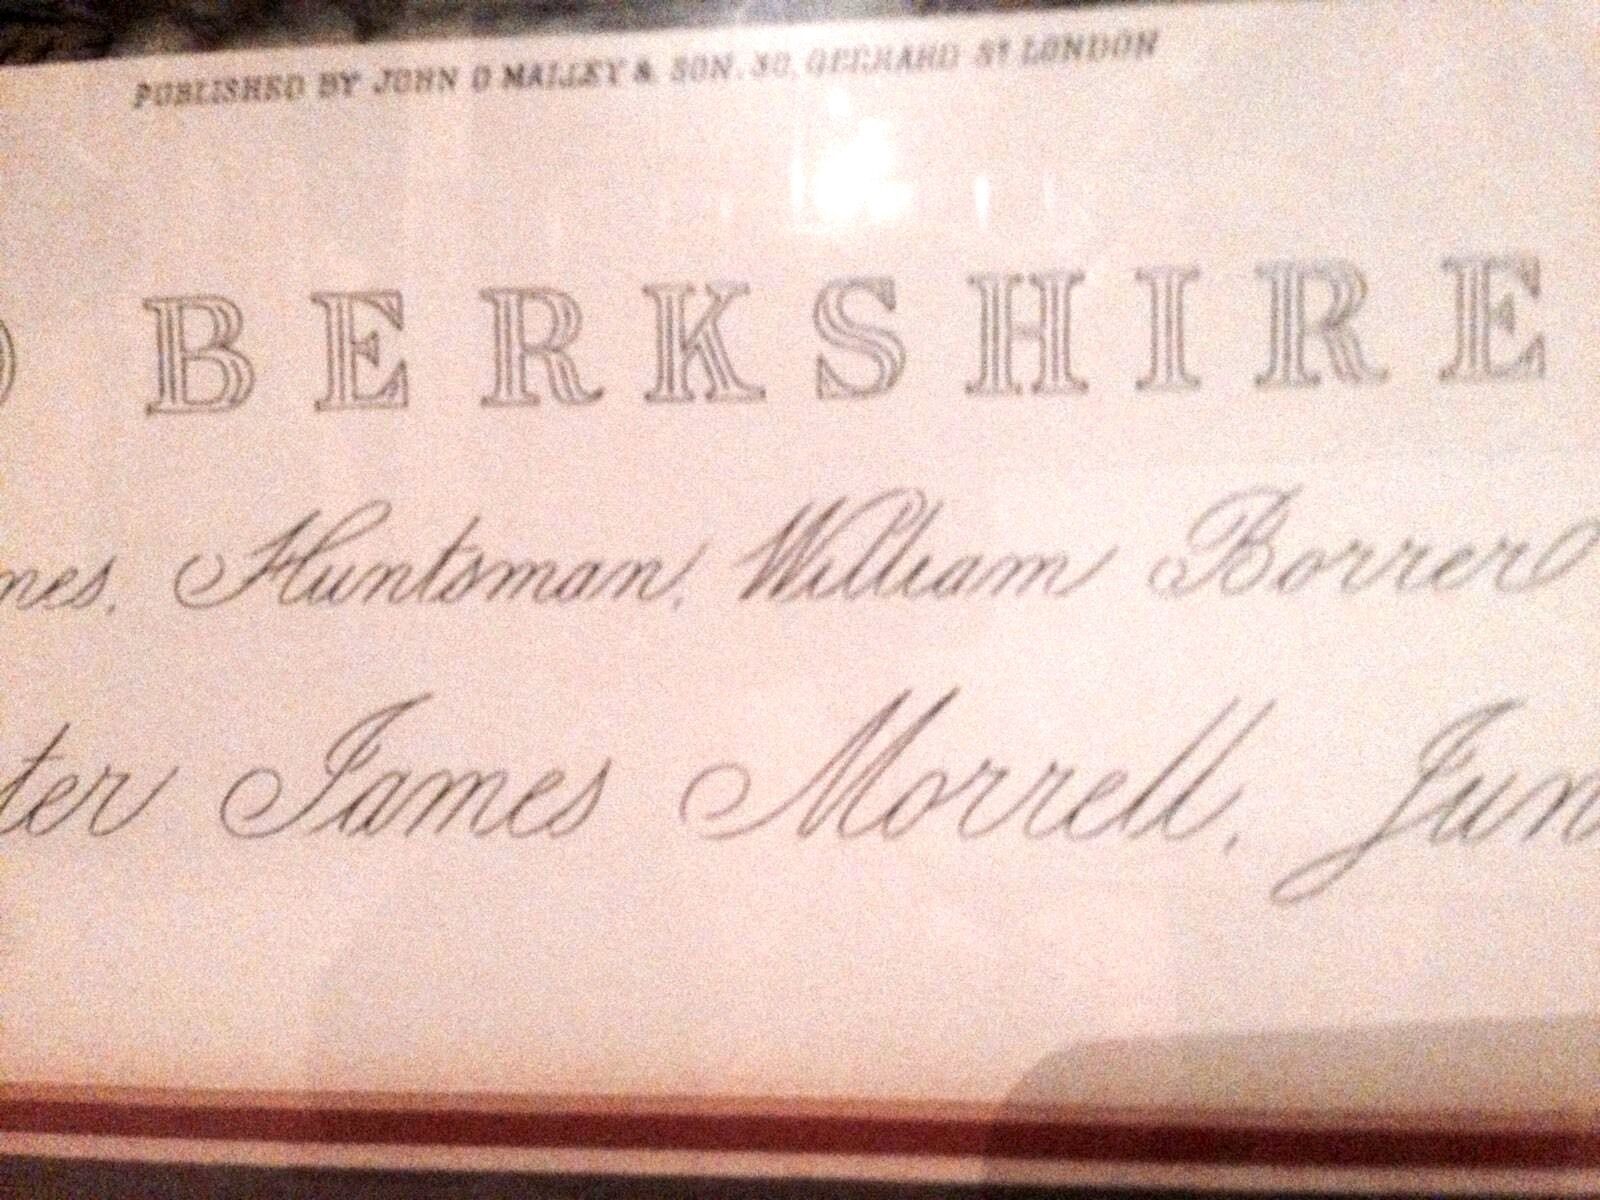 PUBLISHED BY JOHN O MALLEY & SON, 30, GERRARD St LONDON
BERKSHIRE
mes, Huntsman, William Borrer
ter James Morrell, Jun